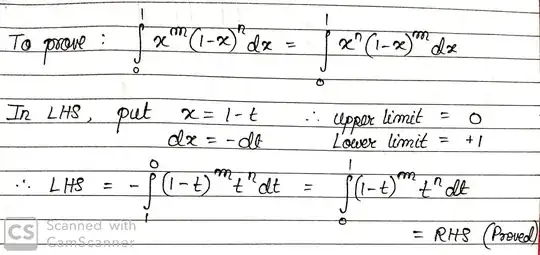 To prove : ∫₀¹ xᵐ(1-x)ⁿdx = ∫₀¹ xⁿ(1-x)ᵐdx
In LHS, put x = 1-t ∴ Upper limit = 0
dx = -dt Lower limit = +1
∴ LHS = -∫₁⁰ (1-t)ᵐ tⁿ dt = ∫₀¹ (1-t)ᵐ tⁿ dt
= RHS (Proved)
CS Scanned with
CamScanner